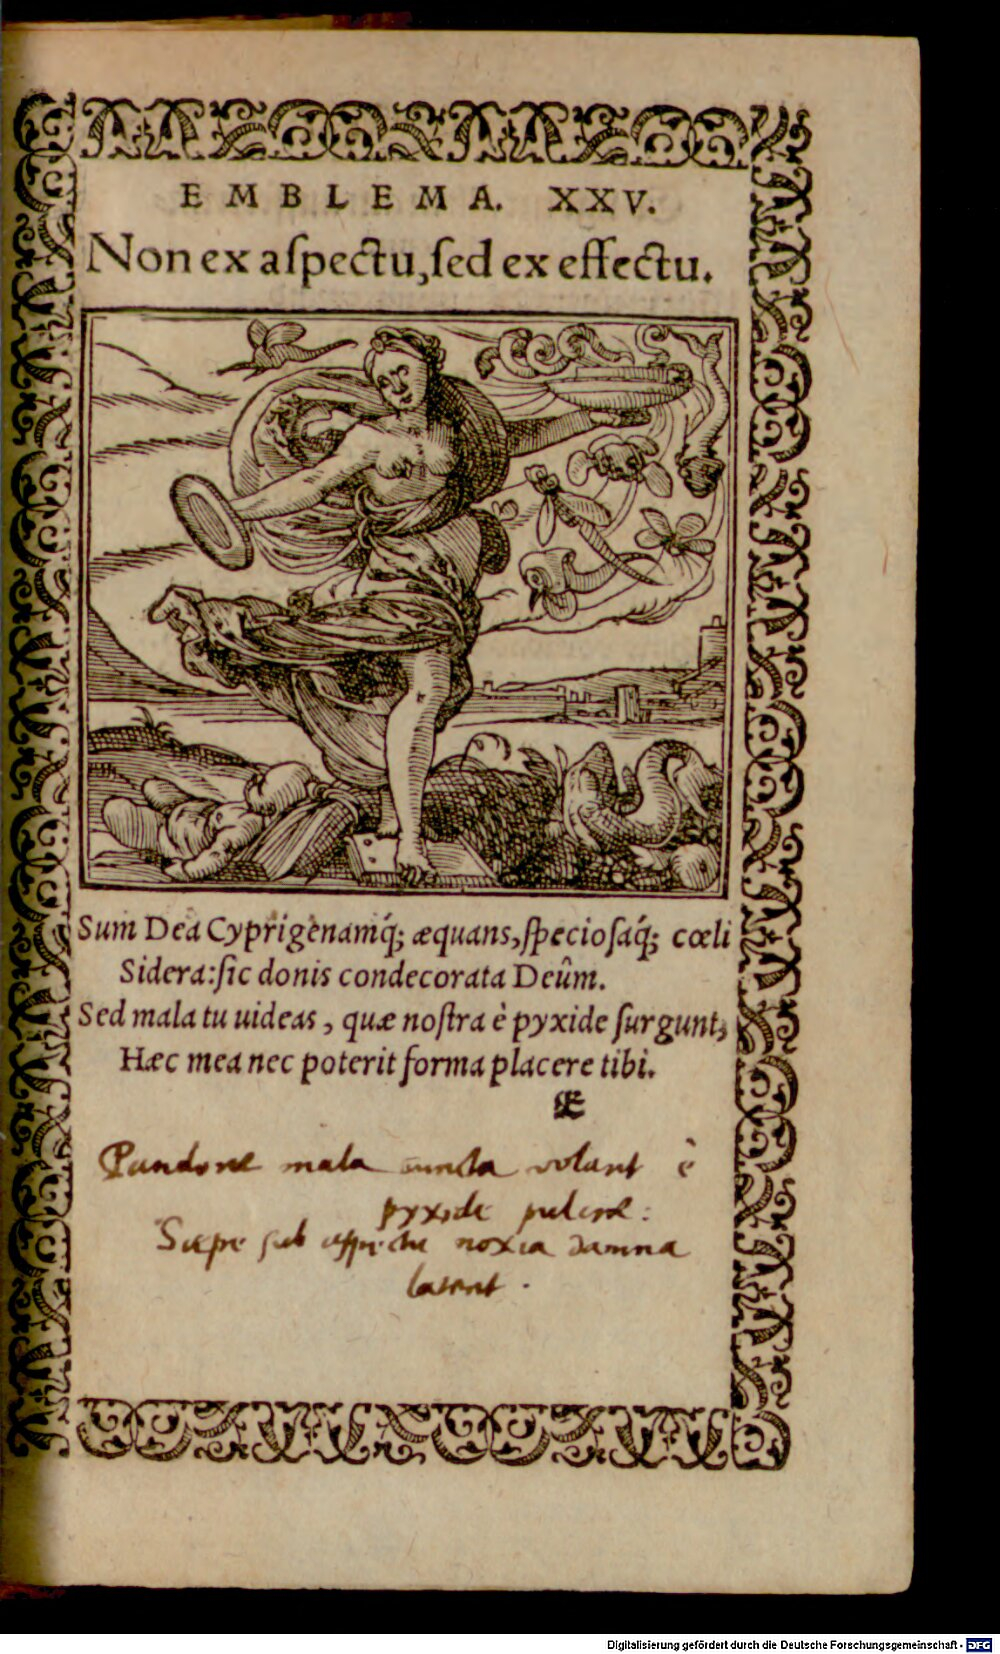 EMBLEMA. XXV.
Non ex aſpectu, ſed ex effectu.
Sum Dea Cyprigenamq́; æquans, ſpecioſaq́; cœli
Sidera: ſic donis condecorata Deûm.
Sed mala tu uideas, quæ noſtra è pyxide ſurgunt,
Hæc mea nec poterit forma placere tibi.
Æ
Pandoræ mala cuncta volant è
pyxide pulcræ:
Sæpe ſub aſpectu noxia damna
latent.
Digitalisierung gefördert durch die Deutsche Forschungsgemeinschaft - DFG